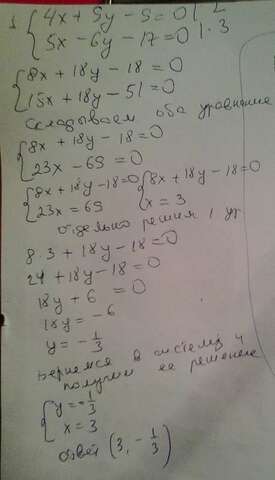 {4x + 9y - 9 = 0 | · 2
{5x - 6y - 17 = 0 | · 3
{8x + 18y - 18 = 0
{15x + 18y - 51 = 0
складываем оба уравнение
{8x + 18y - 18 = 0
{23x - 69 = 0
{8x + 18y - 18 = 0 {8x + 18y - 18 = 0
{23x = 69 {x = 3
отдельно решим 1 ур
8 · 3 + 18y - 18 = 0
24 + 18y - 18 = 0
18y + 6 = 0
18y = -6
y = -1/3
вернемся в систему и
получим ее решение
{y = -1/3
{x = 3
ответ (3, -1/3)